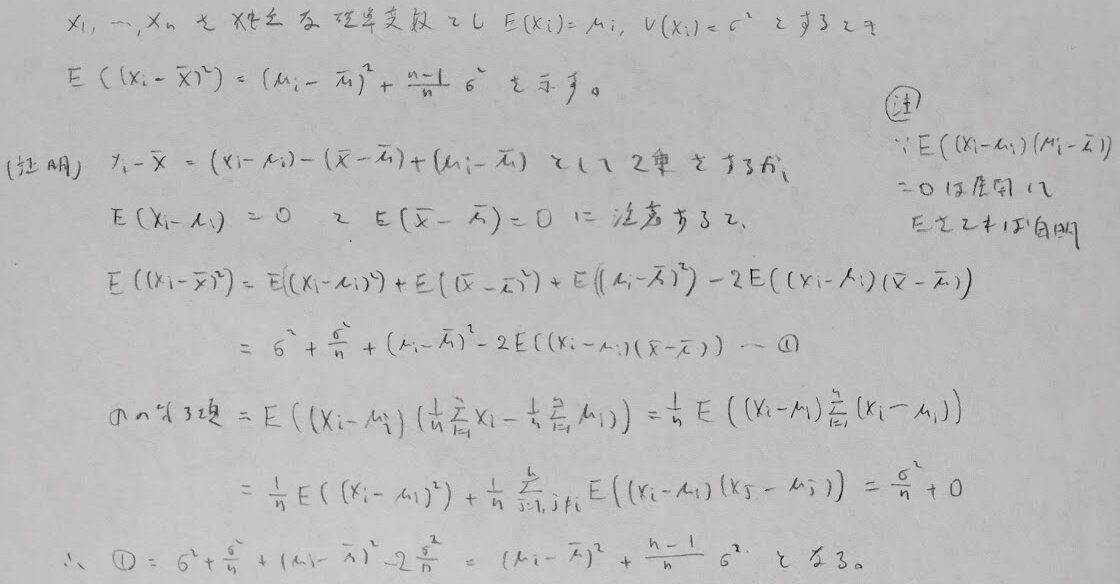 X₁, …, Xₙ を独立な確率変数とし E(Xᵢ) = μᵢ, V(Xᵢ) = σ² とするとき
E((Xᵢ - X̄)²) = (μᵢ - μ̄)² + (n-1)/n σ² を示す。
(証明) Xᵢ - X̄ = (Xᵢ - μᵢ) - (X̄ - μ̄) + (μᵢ - μ̄) として2乗をするが、
E(Xᵢ - μᵢ) = 0 と E(X̄ - μ̄) = 0 に注意すると、
E((Xᵢ - X̄)²) = E((Xᵢ - μᵢ)²) + E((X̄ - μ̄)²) + E((μᵢ - μ̄)²) - 2E((Xᵢ - μᵢ)(X̄ - μ̄))
= σ² + σ²/n + (μᵢ - μ̄)² - 2E((Xᵢ - μᵢ)(X̄ - μ̄)) … ①
= E((Xᵢ - μᵢ)(1/n Σᵢ₌₁ⁿ Xᵢ - 1/n Σᵢ₌₁ⁿ μᵢ)) = 1/n E((Xᵢ - μᵢ) Σᵢ₌₁ⁿ (Xᵢ - μᵢ))
= 1/n E((Xᵢ - μᵢ)²) + 1/n Σⱼ₌₁, ⱼ≠ᵢⁿ E((Xᵢ - μᵢ)(Xⱼ - μⱼ)) = σ²/n + 0
∴ ① = σ² + σ²/n + (μᵢ - μ̄)² - 2 σ²/n = (μᵢ - μ̄)² + (n-1)/n σ² となる。
注
∵ E((Xᵢ - μᵢ)(μᵢ - μ̄))
= 0 は展開して
Eをとれば自明